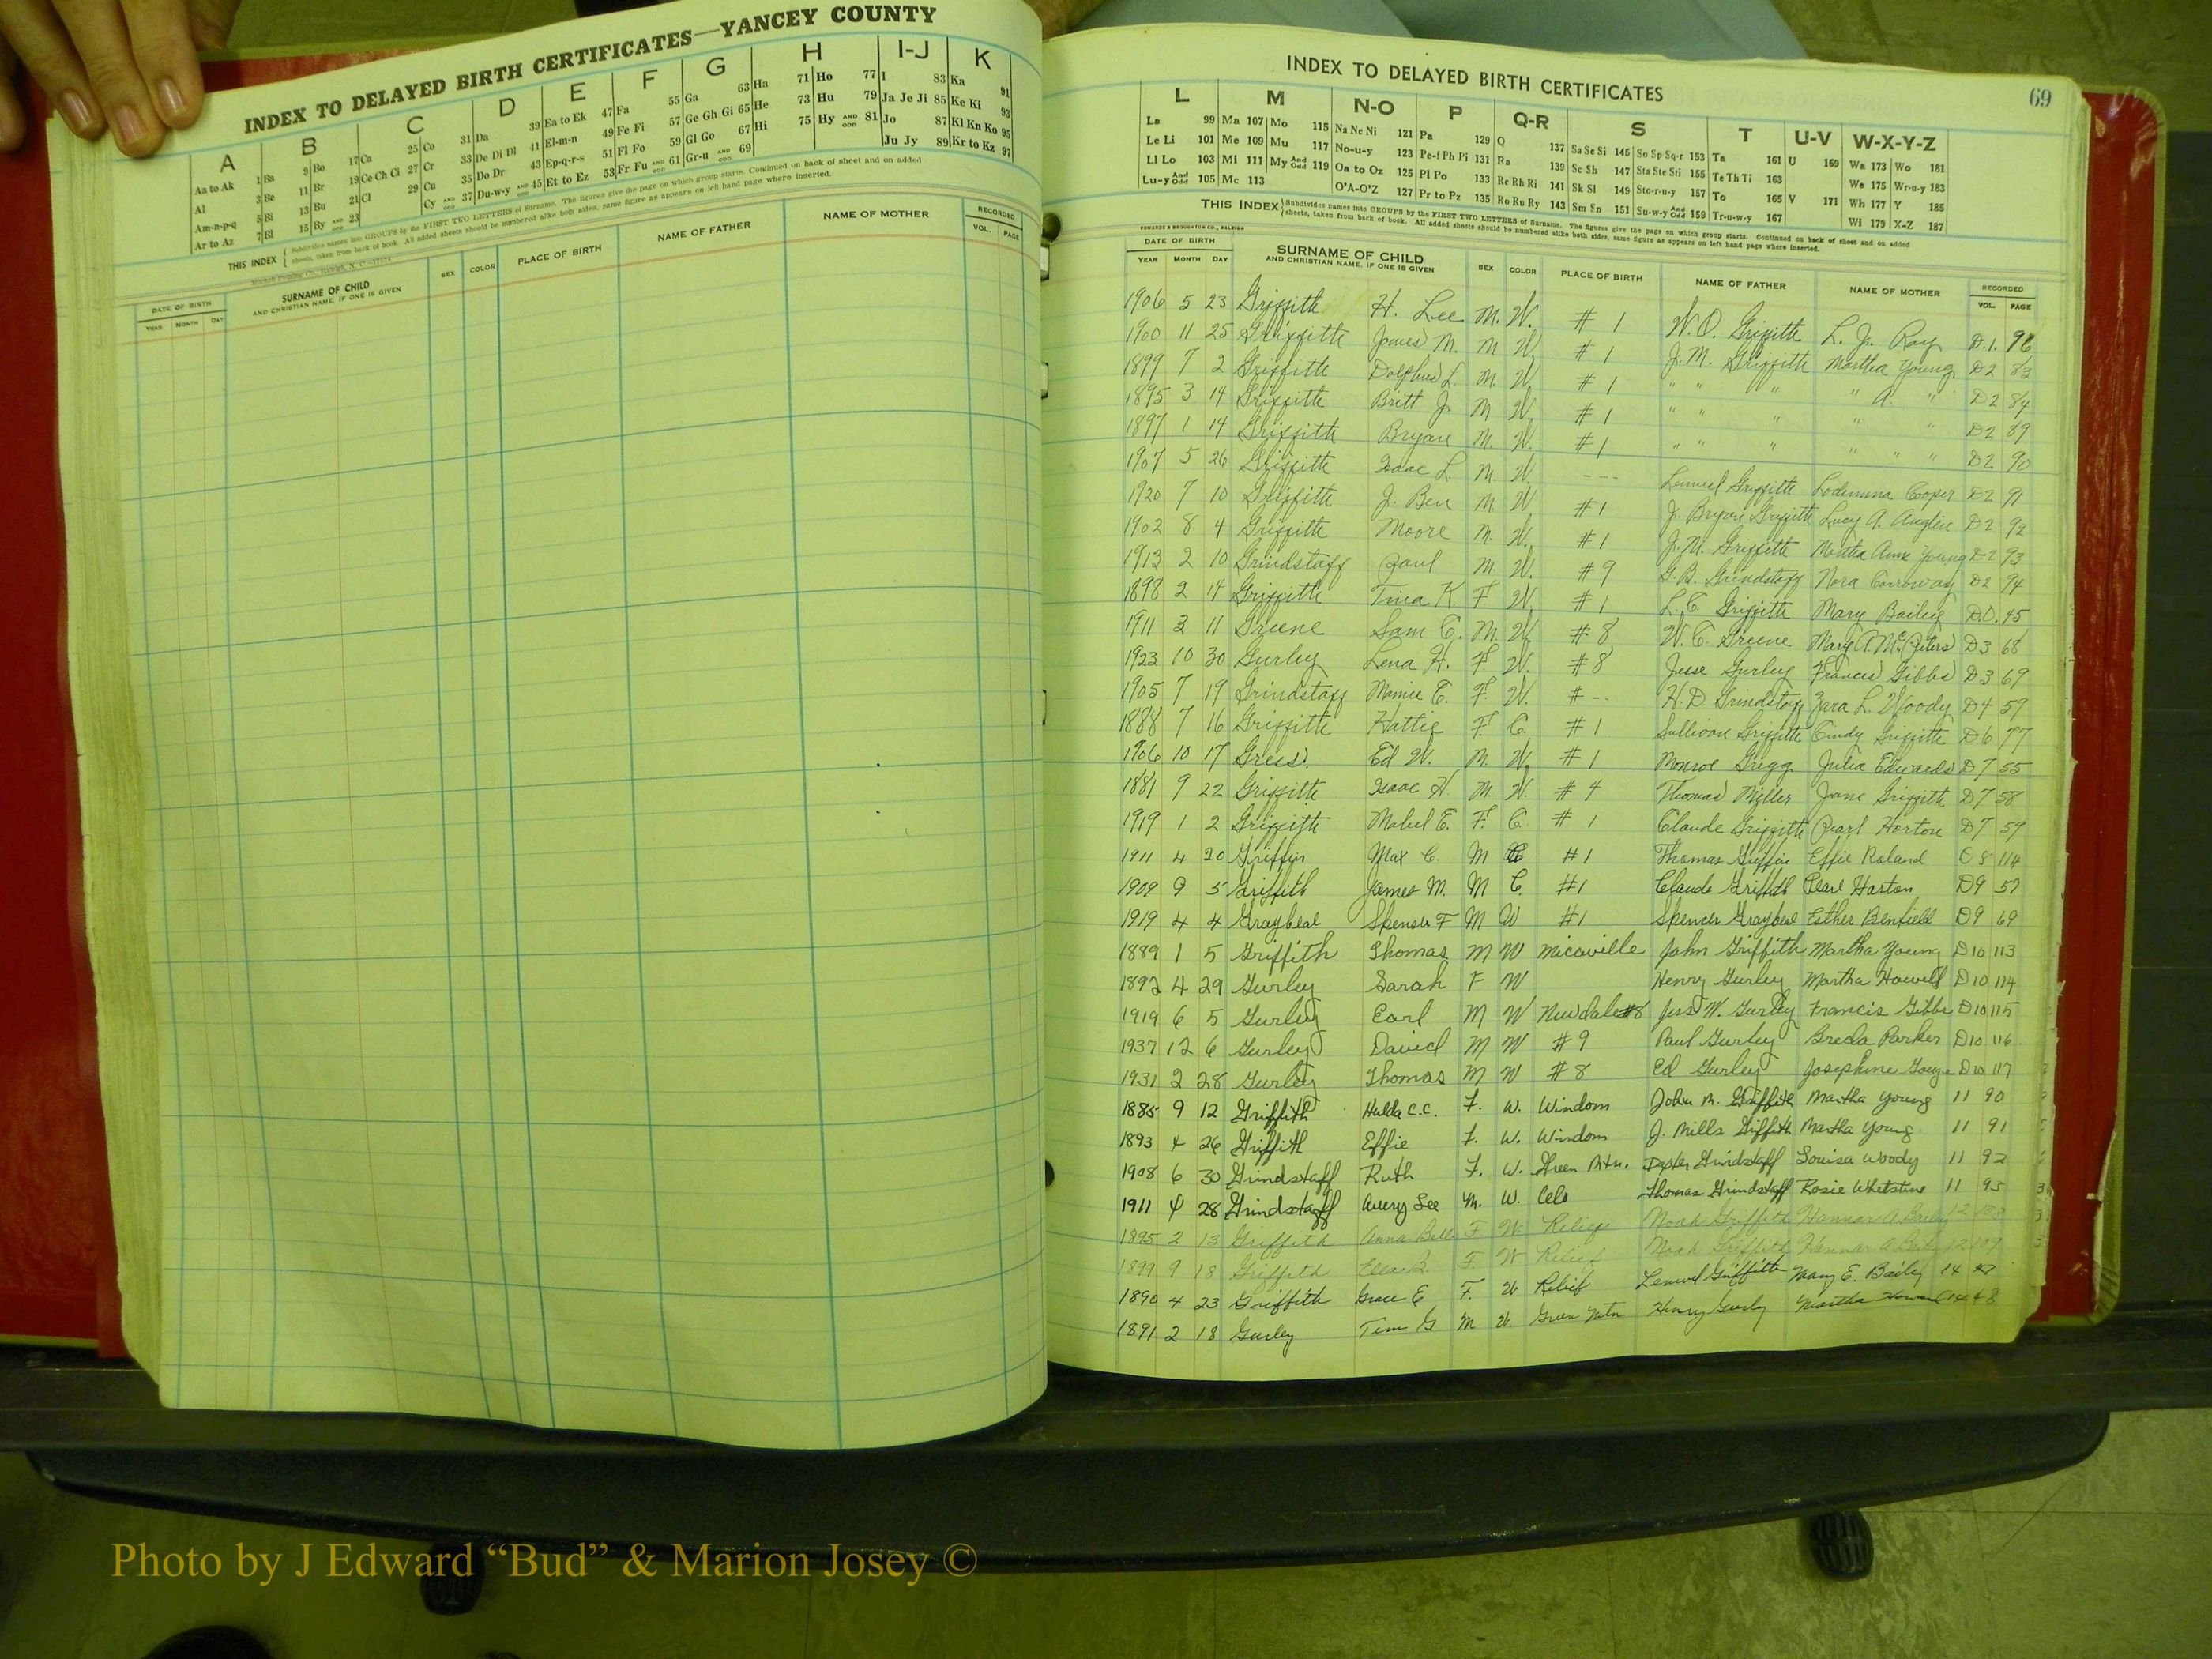 INDEX TO DELAYED BIRTH CERTIFICATES—YANCEY COUNTY
A B C D E F G H I-J K
Aa to Ak 1 Ba 9 Bo 17 Ca 25 Co 31 Da 39 Ea to Ek 47 Fa 55 Ga 63 Ha 71 Ho 77 I 83 Ka 91
Al 3 Be 11 Br 19 Ce Ch Ci 27 Cr 33 De Di Dl 41 El-m-n 49 Fe Fi 57 Ge Gh Gi 65 He 73 Hu 79 Ja Je Ji 85 Ke Ki 93
Am-n-p-q 5 Bi 13 Bu 21 Cl 29 Cu 35 Do Dr 43 Ep-q-r-s 51 Fl Fo 59 Gl Go 67 Hi 75 Hy AND ODD 81 Jo 87 Kl Kn Ko 95
Ar to Az 7 Bl 15 By AND 23 Cy AND ODD 37 Du-w-y AND 45 Et to Ez 53 Fr Fu AND 61 Gr-u AND ODD 69 Ju Jy 89 Kr to Kz 97
THIS INDEX Subdivides names into GROUPS by the FIRST TWO LETTERS of Surname. The figures give the page on which group starts. Continued on back of sheet and on added
sheets, taken from back of book. All added sheets should be numbered alike both sides, same figure as appears on left hand page where inserted.
DATE OF BIRTH SURNAME OF CHILD SEX COLOR PLACE OF BIRTH NAME OF FATHER NAME OF MOTHER RECORDED
YEAR MONTH DAY AND CHRISTIAN NAME, IF ONE IS GIVEN VOL. PAGE
INDEX TO DELAYED BIRTH CERTIFICATES 69
L M N-O P Q-R S T U-V W-X-Y-Z
La 99 Ma 107 Mo 115 Na Ne Ni 121 Pa 129 Q 137 Sa Se Si 145 So Sp Sq-r 153 Ta 161 U 169 Wa 173 Wo 181
Le Li 101 Me 109 Mu 117 No-u-y 123 Pe-f Ph Pi 131 Ra 139 Sc Sh 147 Sta Ste Sti 155 Te Th Ti 163 We 175 Wr-u-y 183
Ll Lo 103 Mi 111 My And Odd 119 Oa to Oz 125 Pl Po 133 Re Rh Ri 141 Sk Sl 149 Sto-r-u-y 157 To 165 V 171 Wh 177 Y 185
Lu-y And Odd 105 Mc 113 O'A-O'Z 127 Pr to Pz 135 Ro Ru Ry 143 Sm Sn 151 Su-w-y And Odd 159 Tr-u-w-y 167 Wi 179 X-Z 187
THIS INDEX Subdivides names into GROUPS by the FIRST TWO LETTERS of Surname. The figures give the page on which group starts. Continued on back of sheet and on added
sheets, taken from back of book. All added sheets should be numbered alike both sides, same figure as appears on left hand page where inserted.
EDWARDS & BROUGHTON CO., RALEIGH
DATE OF BIRTH SURNAME OF CHILD SEX COLOR PLACE OF BIRTH NAME OF FATHER NAME OF MOTHER RECORDED
YEAR MONTH DAY AND CHRISTIAN NAME, IF ONE IS GIVEN VOL. PAGE
1906 5 23 Griffith H. Lee M. W. # 1 W. O. Griffith L. J. Ray D.1. 96
1900 11 25 Griffith James M. M W # 1 J. M. Griffith Martha Young D2 83
1899 7 2 Griffith Dolphus L. M. W. # 1 " " " " A. " D2 84
1895 3 14 Griffith Britt J. M W. # 1 " " " " " D2 89
1897 1 14 Griffith Bryan M. W. # 1 " " " " " " D2 90
1907 5 26 Griffith Isaac L. M. W. --- Lemuel Griffith Lodemma Cooper D2 91
1920 7 10 Griffith J. Ben M. W # 1 J. Bryan Griffith Lucy A. Anglin D2 92
1902 8 4 Griffith Moore M. W. # 1 J. M. Griffith Martha Ann Young D2 93
1913 2 10 Grindstaff Paul M. W. # 9 G. B. Grindstaff Nora Carroway D2 94
1898 2 14 Griffith Tina K F. W. # 1 L. C. Griffith Mary Bailey D.D. 45
1911 3 11 Greene Sam C. M. W. # 8 W. C. Greene Mary A McPeters D3 68
1923 10 30 Gurley Lena H. F W. # 8 Jesse Gurley Francis Gibbs D3 69
1905 7 19 Grindstaff Mamie E. F. W. # -- H. D. Grindstaff Zara L. Woody D4 59
1888 7 16 Griffith Hattie F C. # 1 Sullivan Griffith Cindy Griffith D6 77
1906 10 17 Ed W. M. W. # 1 Monroe Grigg Julia Edwards D7 55
1881 9 22 Griffith Isaac H. M. W. # 4 Thomas Miller Jane Griffith D7 58
1919 1 2 Griffith Mabel E. F. C. # 1 Claude Griffith Pearl Horton D7 59
1911 4 20 Griffin Max C. M #1 Thomas Griffin Effie Roland 8 114
1909 9 5 Griffith James M. M C. #1 Claude Griffith Pearl Horton D9 57
1919 4 4 Graybeal Spenser F M W #1 Spencer Graybeal Esther Benfield D9 69
1889 1 5 Griffith Thomas M W Micaville John Griffith Martha Young D10 113
1892 4 29 Gurley Sarah F W Henry Gurley Martha Howell D10 114
1919 6 5 Gurley Earl M W Newdale #8 Jess W. Gurley Francis Gibbs D10 115
1937 12 6 Gurley David M W # 9 Paul Gurley Breda Parker D10 116
1931 2 28 Gurley Thomas M W # 8 Ed Gurley Josephine Gouge D10 117
1885 9 12 Griffith Hulda C.C. F. W. Windom John M. Griffith Martha Young 11 90
1893 4 26 Griffith Effie F. W. Windom J. Mills Griffith Martha Young 11 91
1908 6 30 Grindstaff Ruth F. W. Green Mtn. Dexter Grindstaff Louisa Woody 11 92
1911 4 28 Grindstaff Avery Lee M. W. Celo Thomas Grindstaff Rosie Whetstine 11 93
1895 2 13 Griffith Anna Bell F W Relief Noah Griffith Hannar A Bailey 12
1899 9 18 Griffith Ella B. F. W Relief Noah Griffith Hannar A 12 109
1890 4 23 Griffith Grace E F. W Relief Lemuel Griffith Mary E. Bailey 14 47
1891 2 18 Gurley Tim G M W. Green Mtn Henry Gurly Martha 14 48
Photo by J Edward “Bud” & Marion Josey ©